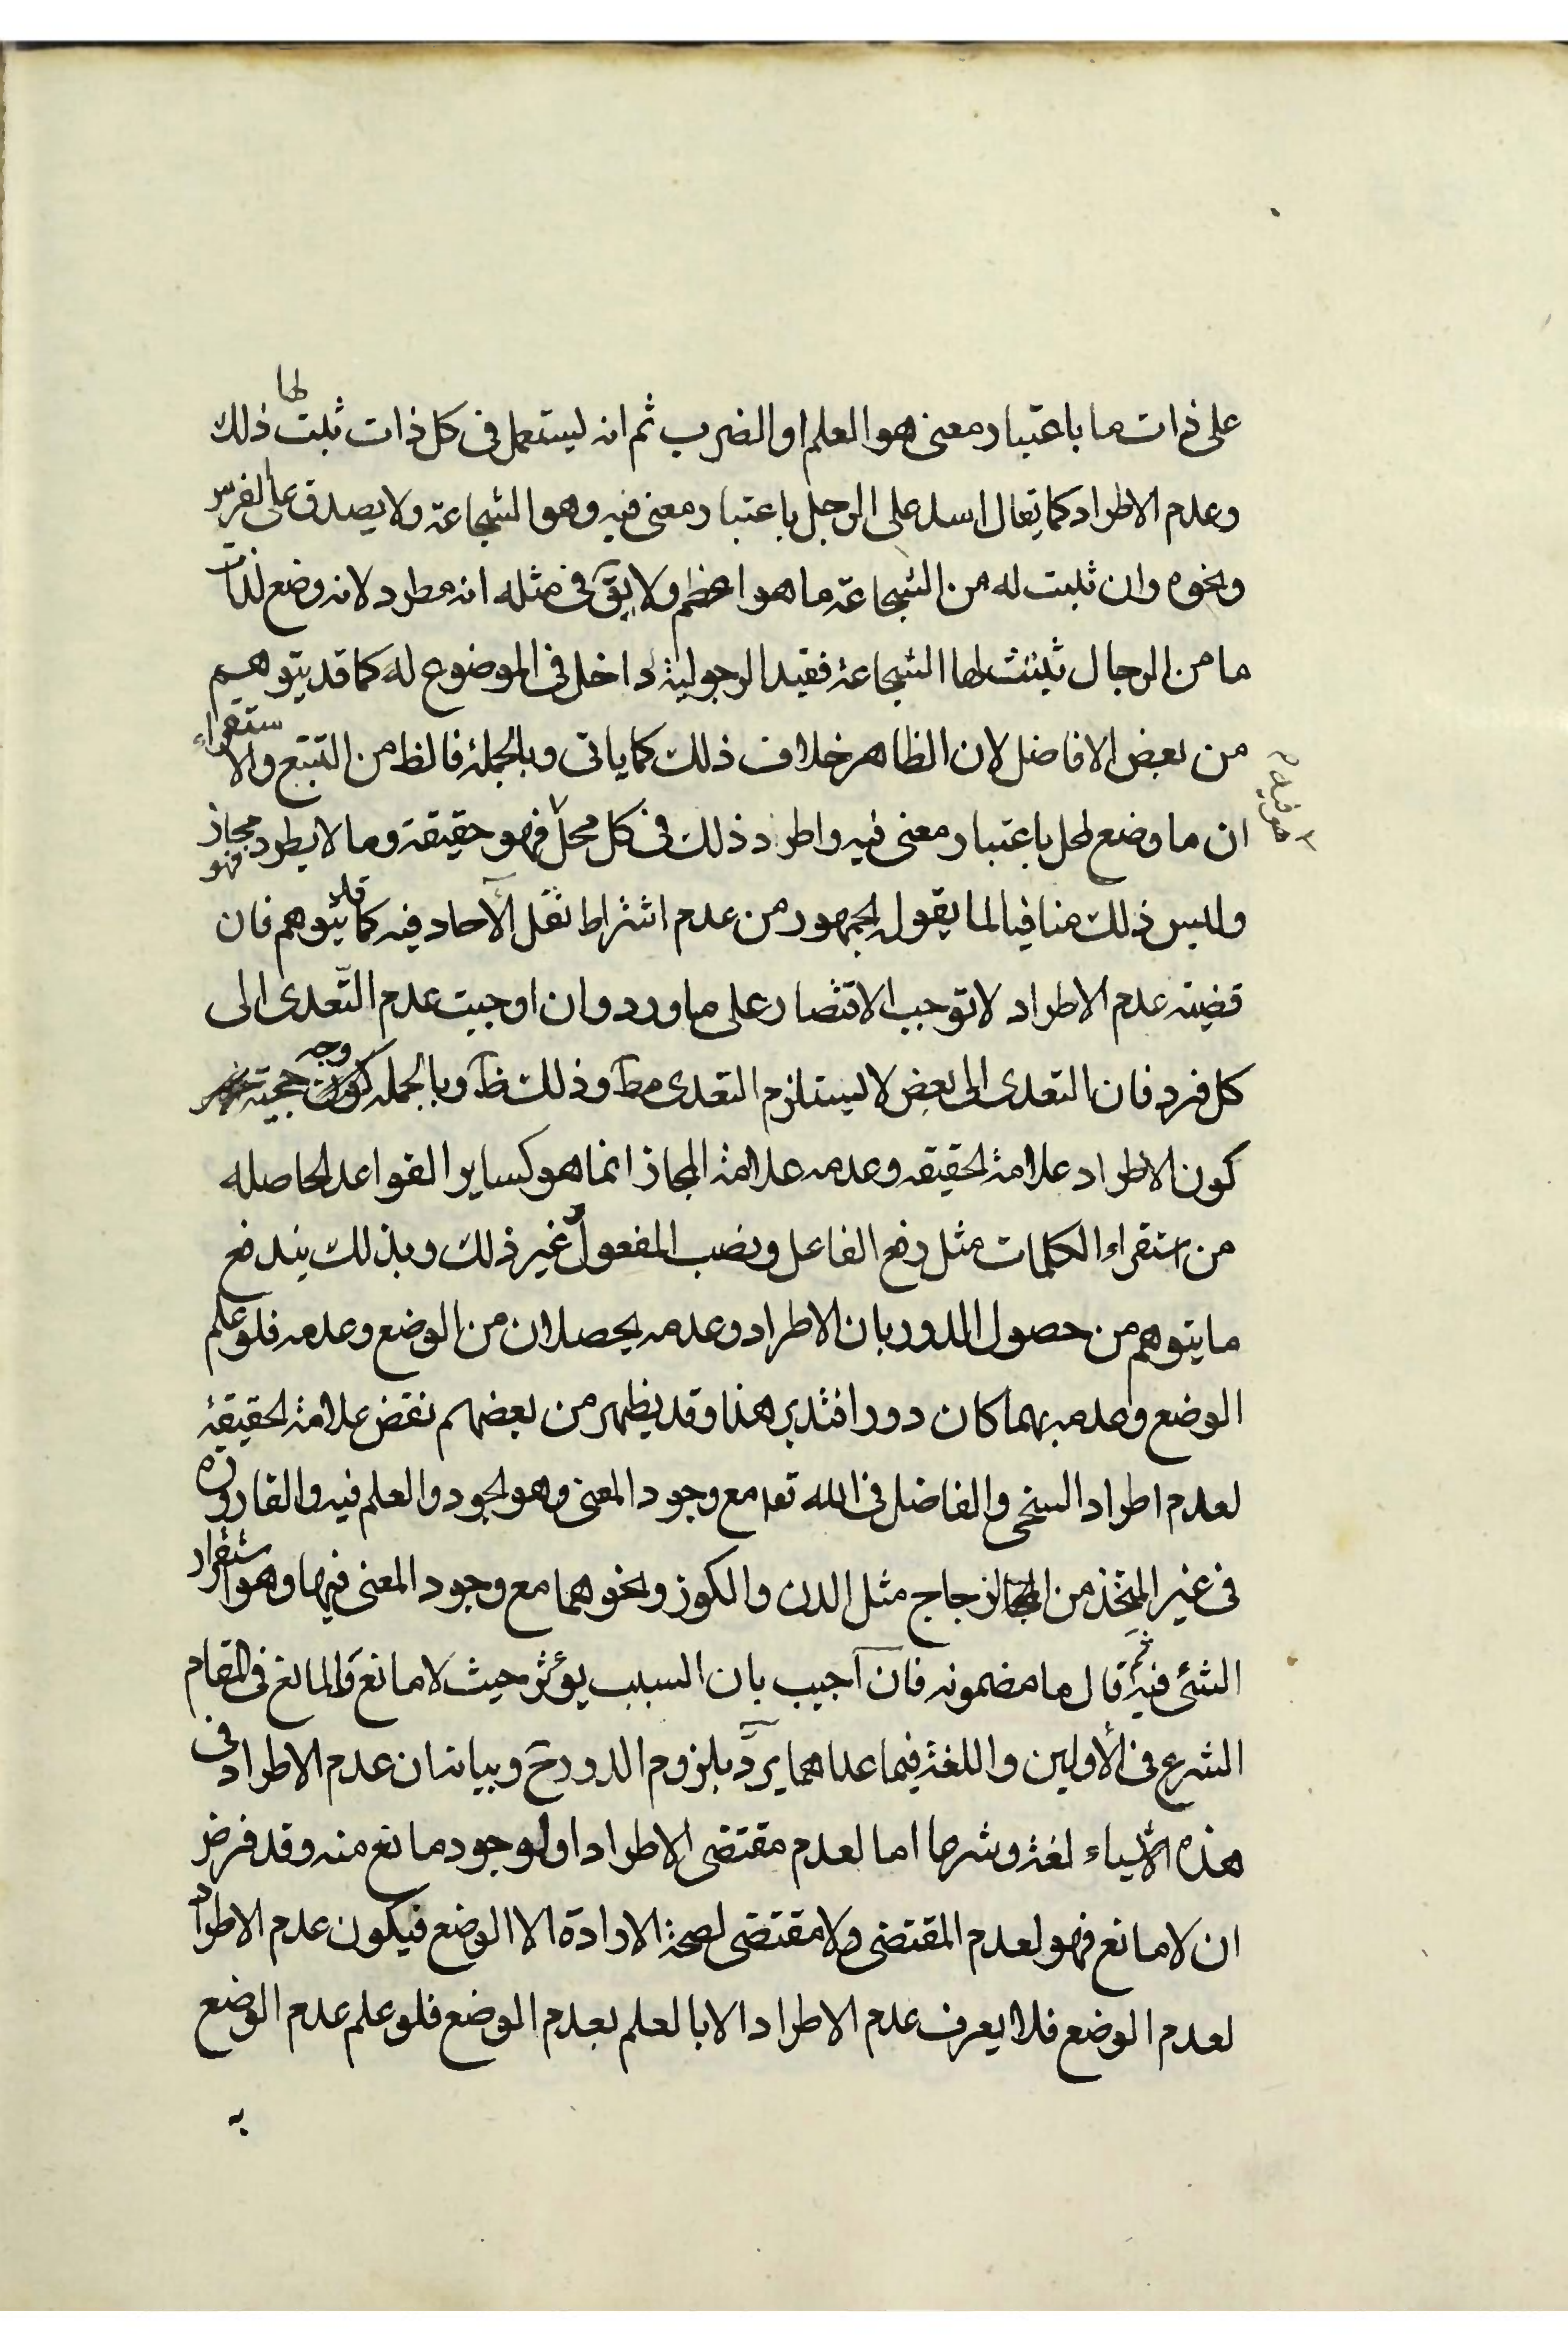 على ذات ما باعتبار معنى هو العلم او الضرب ثم انه يستعمل فى كل ذات ثبلت لها ذلك
وعدم الاطراد كما يقال اسد على الرجل باعتبار معنى فيه وهو الشجاعة ولا يصدق على الفرس
ونحوه وان ثبت له من الشجاعة ما هو اعظم ولا يقَ فى مثله انه مطرد لانه وضع لذات
ما من الرجال ثبتت لها الشجاعة فقيد الرجولية داخل فى الموضوع له كما قد يتوهم
من بعض الافاضل لان الظاهر خلاف ذلك كما ياتى وبالجملة فالظ من التتبع والاستقراء
ان ما وضع لمحل باعتبار معنى فيه واطرد ذلك فى كل محل فهو حقيقة وما لا يطرد فهو مجاز
وليس ذلك منافيا لما يقول الجمهور من عدم اشتراط نقل الآحاد فيه كما قد يتوهم فان
قضيته عدم الاطراد لا توجب الاقتصار على ما ورد وان اوجبت عدم التّعدى الى
كل فرد فان التعدى الى بعض لا يستلزم التعدى مطَ وذلك ظَ وبالجمله وجه حجيته
كون الاطراد علامة الحقيقه وعدمه علامة المجاز انما هو كساير القواعد الحاصله
من استقراء الكلمات مثل رفع الفاعل ونصب المفعول و غير ذلك وبذلك يندفع
ما يتوهم من حصول الدور بان الاطراد وعدمه يحصلان من الوضع وعدمه فلو علم
الوضع وعدمه بهما كان دورا فتدبر هذا وقد يظهر من بعضهم نقض علامة الحقيقة
لعدم اطراد السخى والفاضل فى الله تعا مع وجود المعنى وهو الجود والعلم فيه والقارورة
فى غير المتخذ من الزجاج مثل الدن والكوز ونحوهما مع وجود المعنى فيها وهو استقرار
الشئ فيه ثم قال ما مضمونه فان اجيب بان السبب يؤثر حيث لا مانع والمانع فى المقام
الشرع فى الأولين واللغة فيما عداهما يردّ بلزوم الدور حَ وبيانه ان عدم الاطراد فى
هذه الاشياء لغة وشرعا اما لعدم مقتضى الاطراد او لوجود مانع منه وقد فرض
ان لا مانع فهو لعدم المقتضى ولا مقتضى لصحة الارادة الا الوضع فيكون عدم الاطراد
لعدم الوضع فلا يعرف عدم الاطراد الا بالعلم بعدم الوضع فلو علم عدم الوضع
به